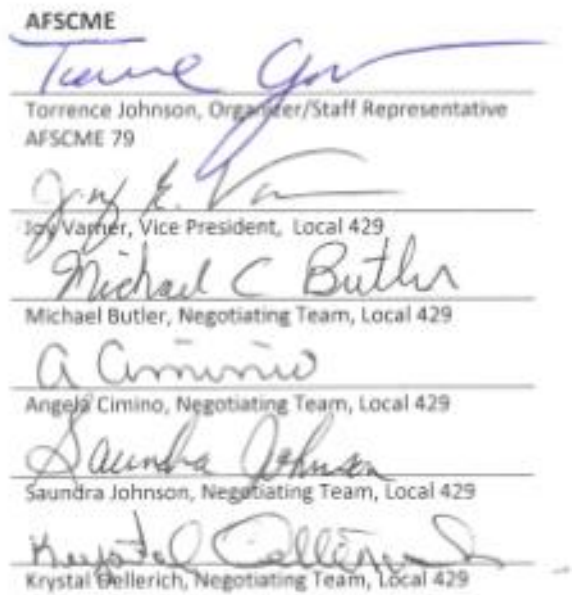 AFSCME
Torrence Johnson, Organizer/Staff Representative
AFSCME 79
Joy E. Va
Joy Varner, Vice President, Local 429
Michael C Butler
Michael Butler, Negotiating Team, Local 429
A Cimino
Angela Cimino, Negotiating Team, Local 429
Saundra Johnson
Saundra Johnson, Negotiating Team, Local 429
Krystal Dellerich
Krystal Dellerich, Negotiating Team, Local 429